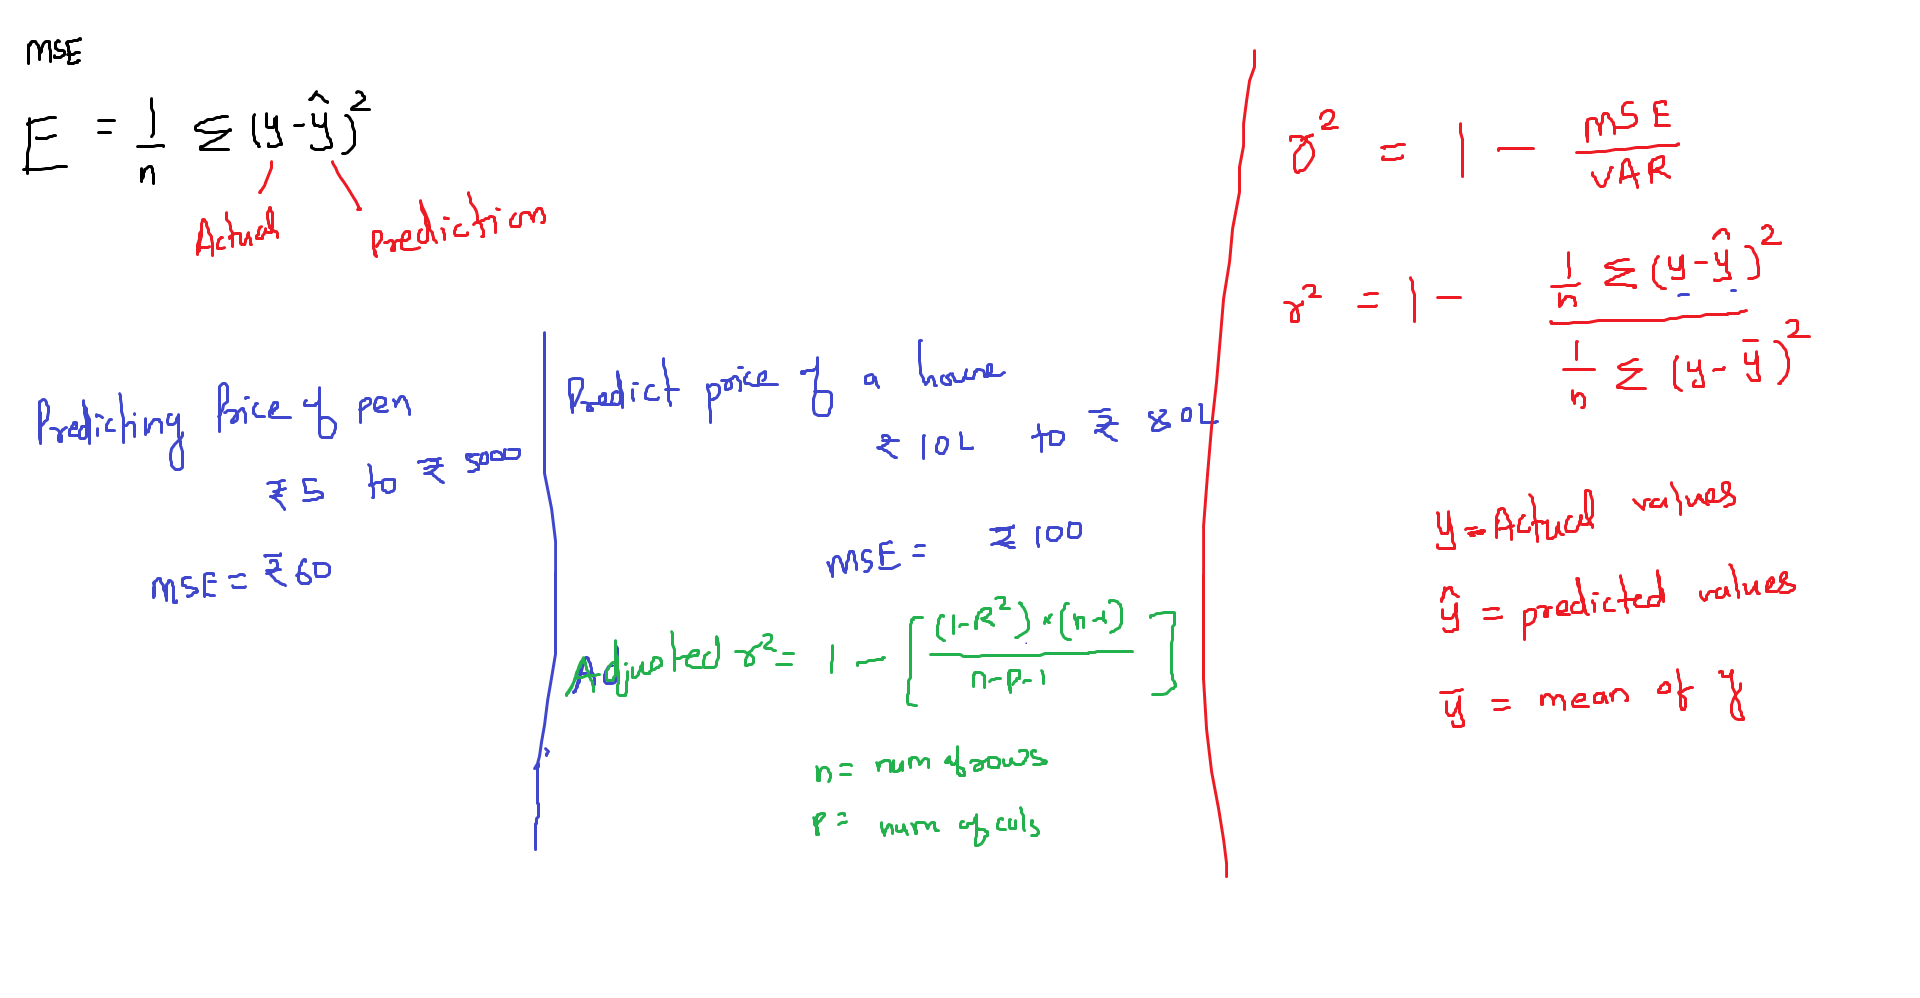 MSE
E = 1/n Σ (y - ŷ)²
Actual Prediction
Predicting Price of pen
₹5 to ₹ 5000
MSE = ₹60
Predict price of a house
₹ 10L to ₹ 80L
MSE = ₹ 100
Adjusted r² = 1 - [ (1-R²) × (n-1) / n-p-1 ]
n = num of rows
p = num of cols
r² = 1 - MSE / VAR
r² = 1 - 1/n Σ (y - ŷ)² / 1/n Σ (y - ȳ)²
y = Actual values
ŷ = predicted values
ȳ = mean of y